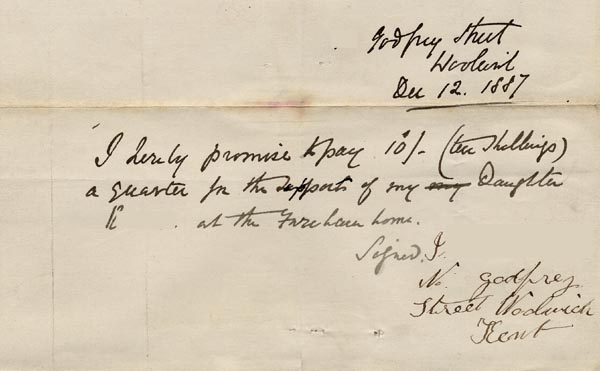 Godfrey Street
Woolwich
Dec 12. 1887
I hereby promise to pay 10/- (ten Shellings)
a quarter for the support of my my Daughter
at the Fareham home.
Signed. J.
No. Godfrey
Street Woolwich
Kent